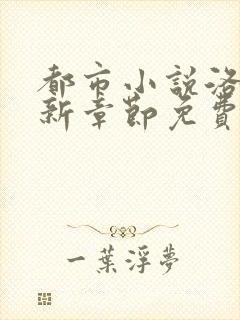 都市小說洛
新章節免費
一葉浮夢